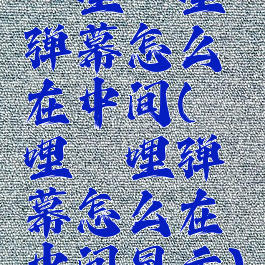 弹幕怎么
在中间(
哩 哩弹
幕怎么在
中间显示)